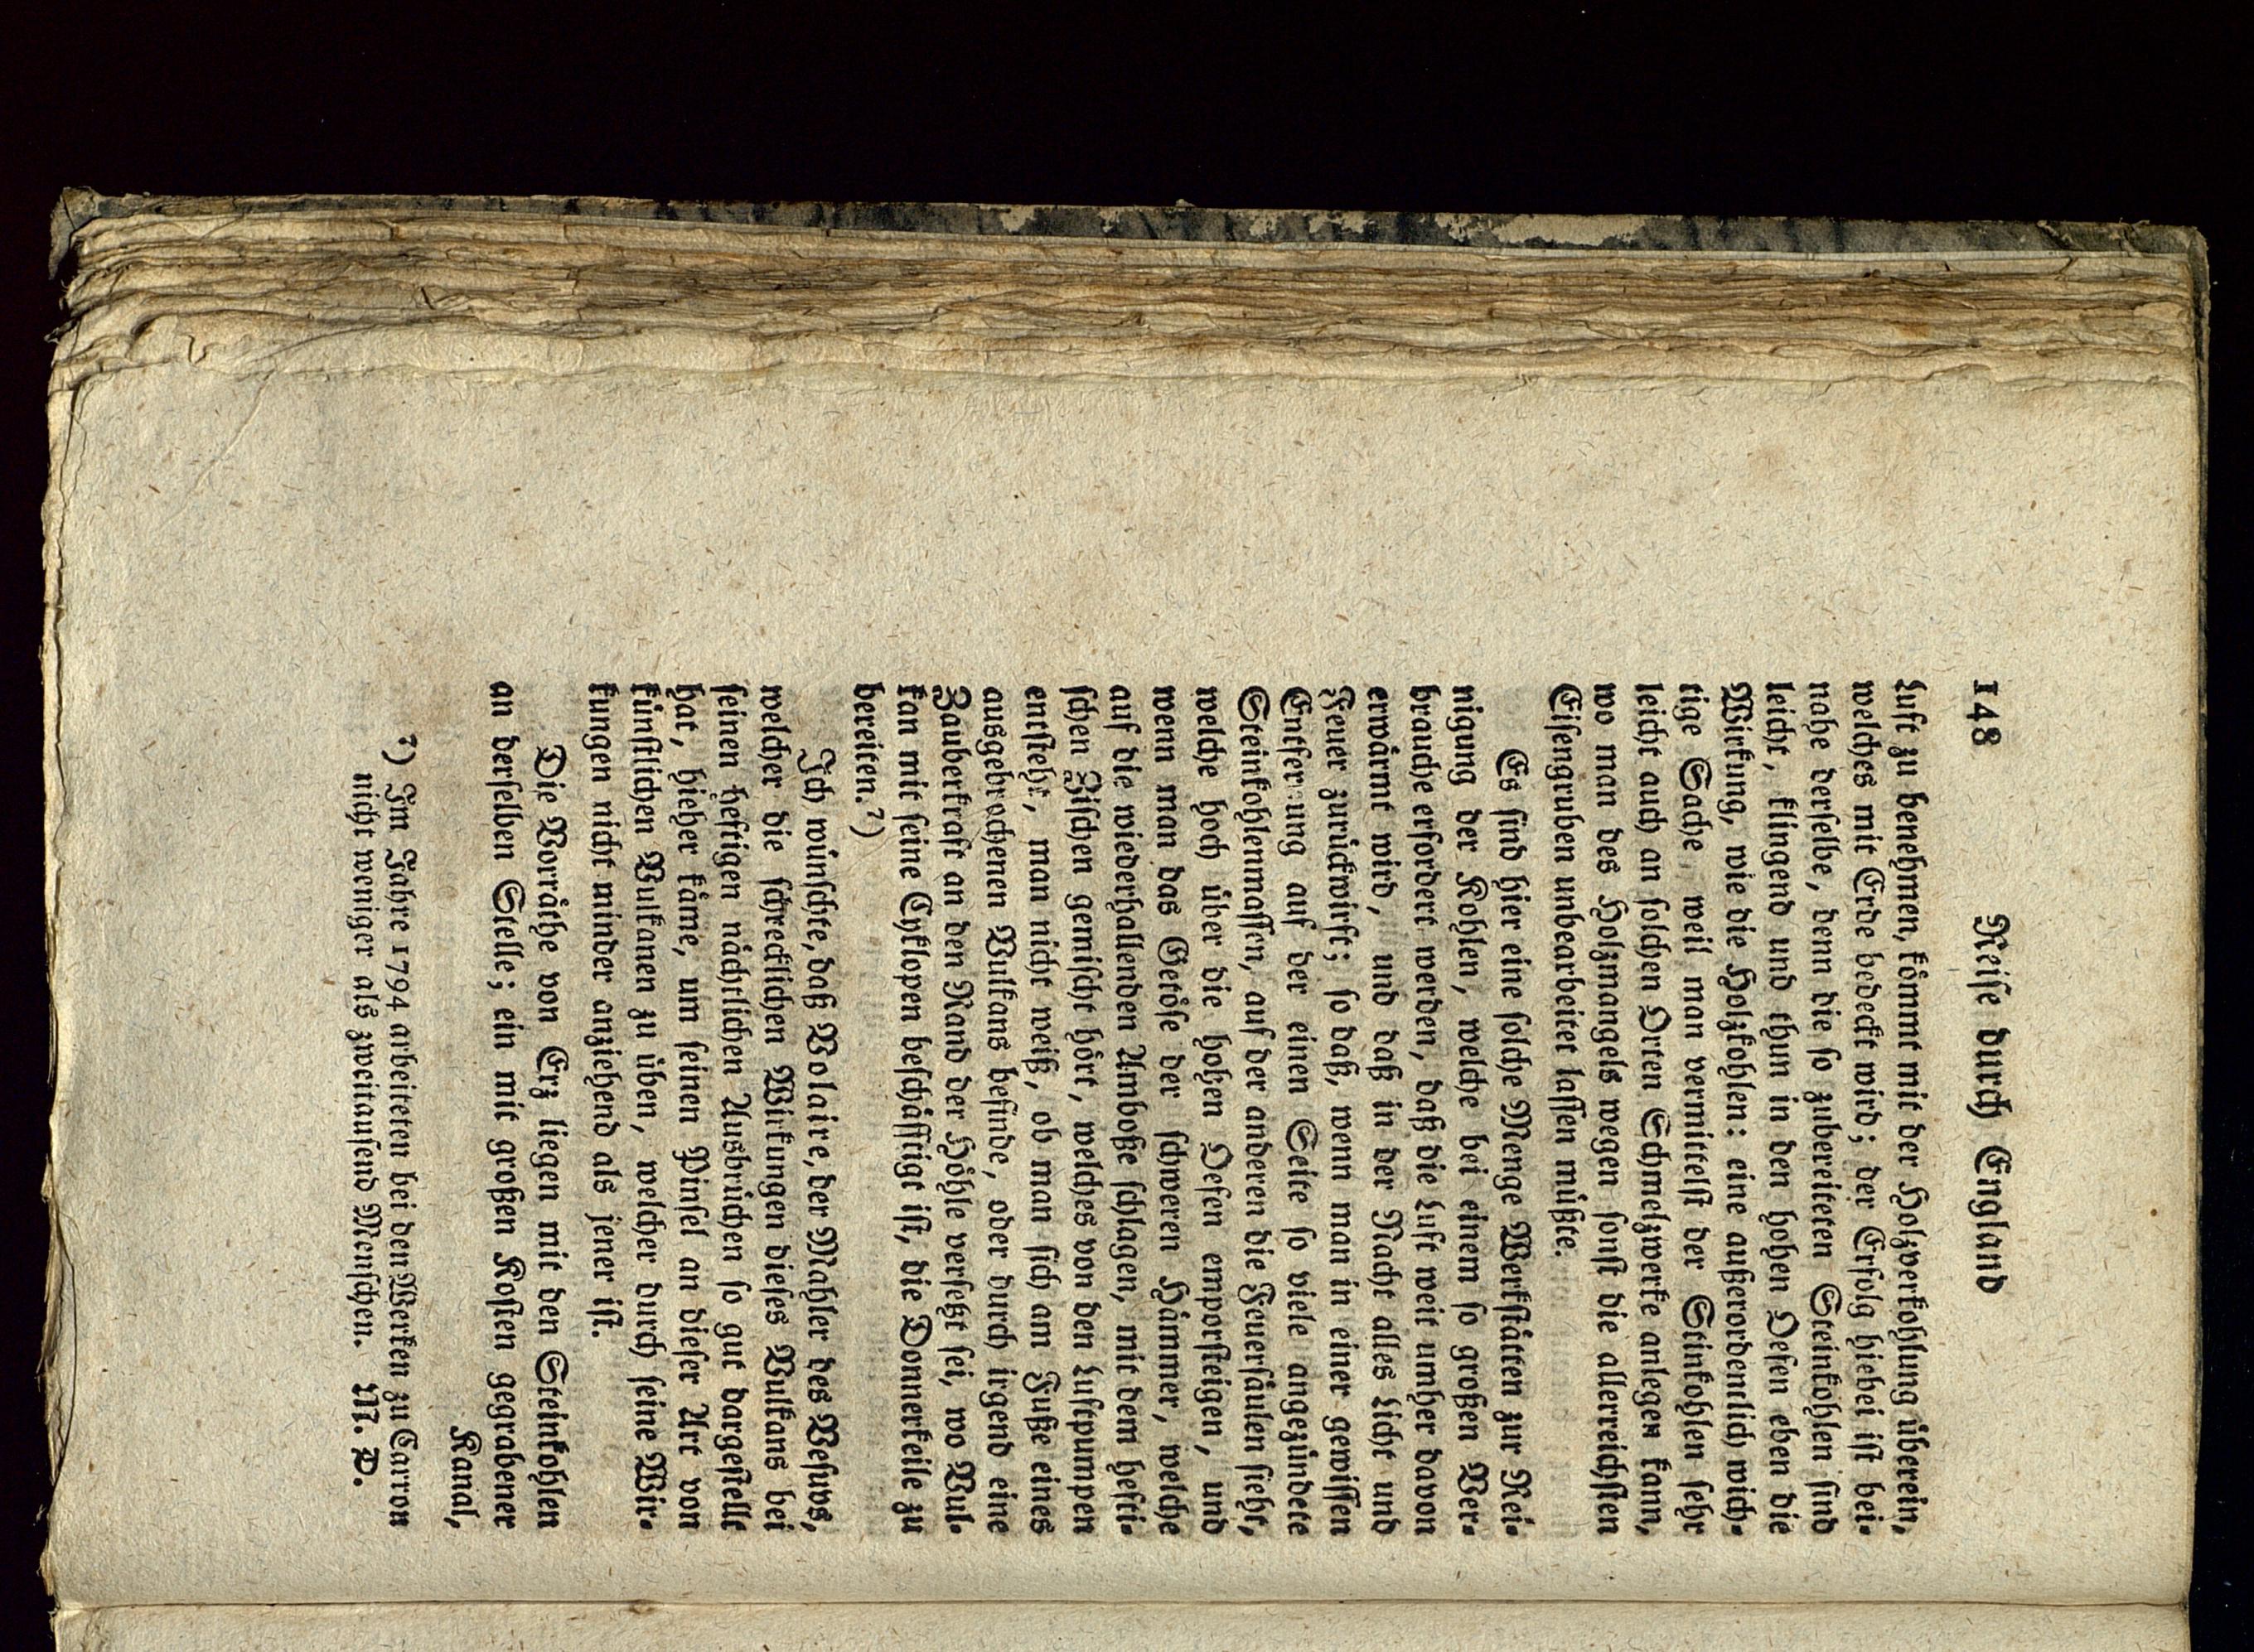 148 Reise durch England
Luft zu benehmen, kömmt mit der Holzverkohlung überein,
welches mit Erde bedeckt wird; der Erfolg hiebei ist bei-
nahe derselbe, denn die so zubereiteten Steinkohlen sind
leicht, klingend und thun in den hohen Oefen eben die
Wirkung, wie die Holzkohlen: eine außerordentlich wich-
tige Sache, weil man vermittelst der Steinkohlen sehr
leicht auch an solchen Orten Schmelzwerke anlegen kann,
wo man des Holzmangels wegen sonst die allerreichsten
Eisengruben unbearbeitet lassen müßte.
Es sind hier eine solche Menge Werkstätten zur Rei-
nigung der Kohlen, welche bei einem so großen Ver-
brauche erfordert werden, daß die Luft weit umher davon
erwärmt wird, und daß in der Nacht alles Licht und
Feuer zurückwirft; so daß, wenn man in einer gewissen
Entfernung auf der einen Seite so viele angezündete
Steinkohlenmassen, auf der anderen die Feuersäulen sieht,
welche hoch über die hohen Oefen emporsteigen, und
wenn man das Getöse der schweren Hämmer, welche
auf die wiederhallenden Amboße schlagen, mit dem hefti-
schen Zischen gemischt hört, welches von den Luftpumpen
entsteht, man nicht weiß, ob man sich am Fuße eines
ausgebrochenen Vulkans befinde, oder durch irgend eine
Zauberkraft an den Rand der Höhle versetzt sei, wo Vul-
kan mit seine Cyklopen beschäfftigt ist, die Donnerkeile zu
bereiten.⁷)
Ich wünschte, daß Volaire, der Mahler des Vesuvs,
welcher die schrecklichen Wirkungen dieses Vulkans bei
seinen heftigen nächtlichen Ausbrüchen so gut dargestellt
hat, hieher käme, um seinen Pinsel an dieser Art von
künstlichen Vulkanen zu üben, welcher durch seine Wir-
kungen nicht minder anziehend als jener ist.
Die Vorräthe von Erz liegen mit den Steinkohlen
an derselben Stelle; ein mit großen Kosten gegrabener
Kanal,
⁷) Im Jahre 1794 arbeiteten bei den Werken zu Carron
nicht weniger als zweitausend Menschen. M. D.